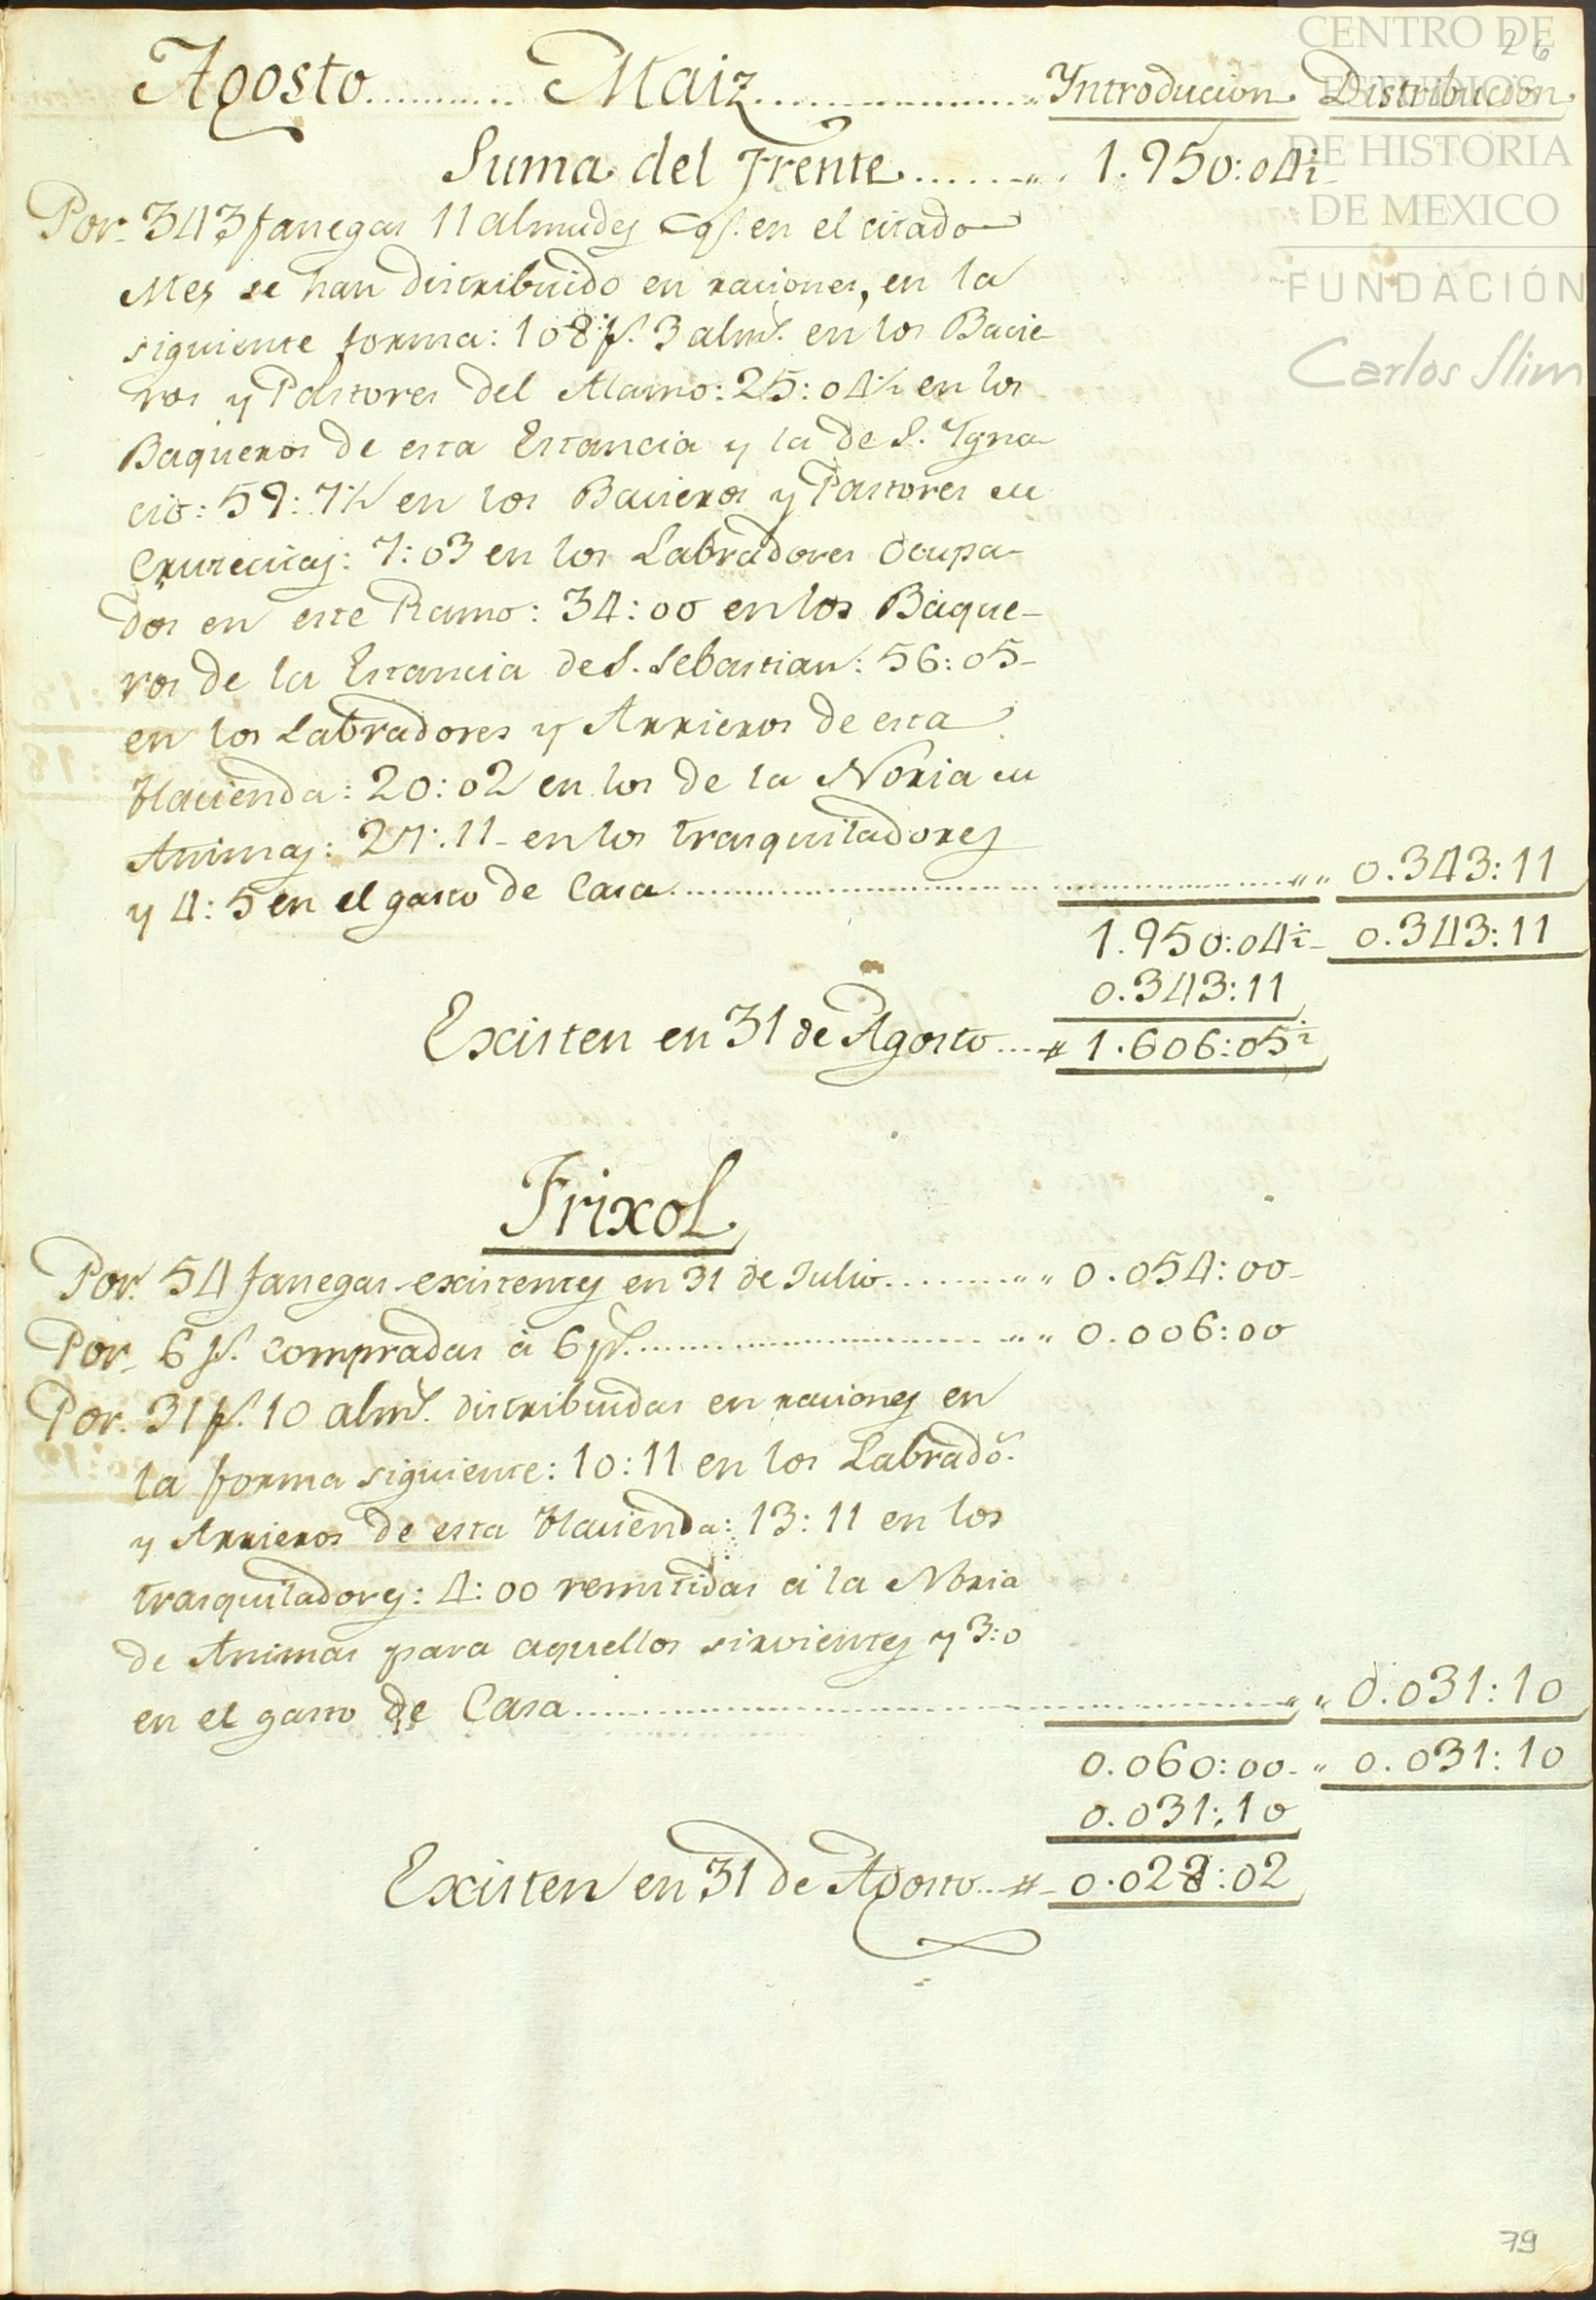 CENTRO DE
ESTUDIOS
DE HISTORIA
DE MEXICO
FUNDACIÓN
Carlos Slim
26
Agosto........... Maiz.................. Yntroducion. Distribucion.
Suma del Frente........„. 1.950:04½
Por 343 fanegas 11 almudes qe. en el citado
Mes se han distribuido en raciones, en la
siguiente forma: 108 fs. 3 alms. en los Bacie-
ros y Pastores del Alamo: 25:04½ en los
Baqueros de esta Estancia y la de S. Ygna-
cio: 59:7½ en los Bacieros y Pastores de
Crucecitas: 7:03 en los Labradores Ocupa-
dos en este Ramo: 34:00 en los Baque-
ros de la Estancia de S. Sebastian: 56:05-
en los Labradores y Arrieros de esta
Hacienda: 20:02 en los de la Noria de
Animas: 27:11- en los trasquiladores
y 4:5 en el gasto de Casa................................„„ 0.343:11
1.950:04½- 0.343:11
0.343:11
Existen en 31 de Agosto....# 1.606:05½
Frixol
Por 54 fanegas existentes en 31 de Julio..........„„ 0.054:00-
Por 6 fs. compradas á 6 ps......................„„ 0.006:00
Por 31 fs. 10 alms. distribuidas en raciones en
la forma siguiente: 10:11 en los Labrados.
y Arrieros de esta Hacienda: 13:11 en los
trasquiladores: 4:00 remitidas á la Noria
de Animas para aquellos sirvientes y 3:0
en el gasto de Casa................................„„ 0.031:10
0.060:00-„ 0.031:10
0.031:10
Existen en 31 de Agosto...#- 0.028:02
79